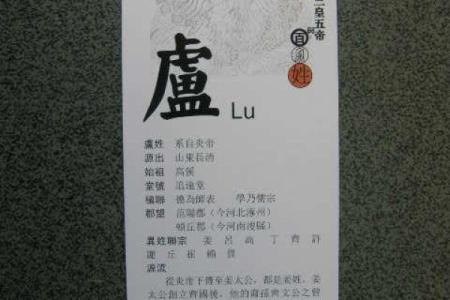 皇五帝
百
姓
盧 Lu
盧姓 系自炎帝
源出 山東長清
始祖 高傒
堂號 追遠堂
楹聯 德為師表 學乃儒宗
郡望 范陽郡（今河北涿州）
頓丘郡（今河南浚縣）
異姓聯宗 姜 呂 高 丁 齊 許
謝 丘 崔 賴
源流
從炎帝下傳至姜太公，都是姜姓，姜
太公創立齊國後，他的裔孫齊文公之曾